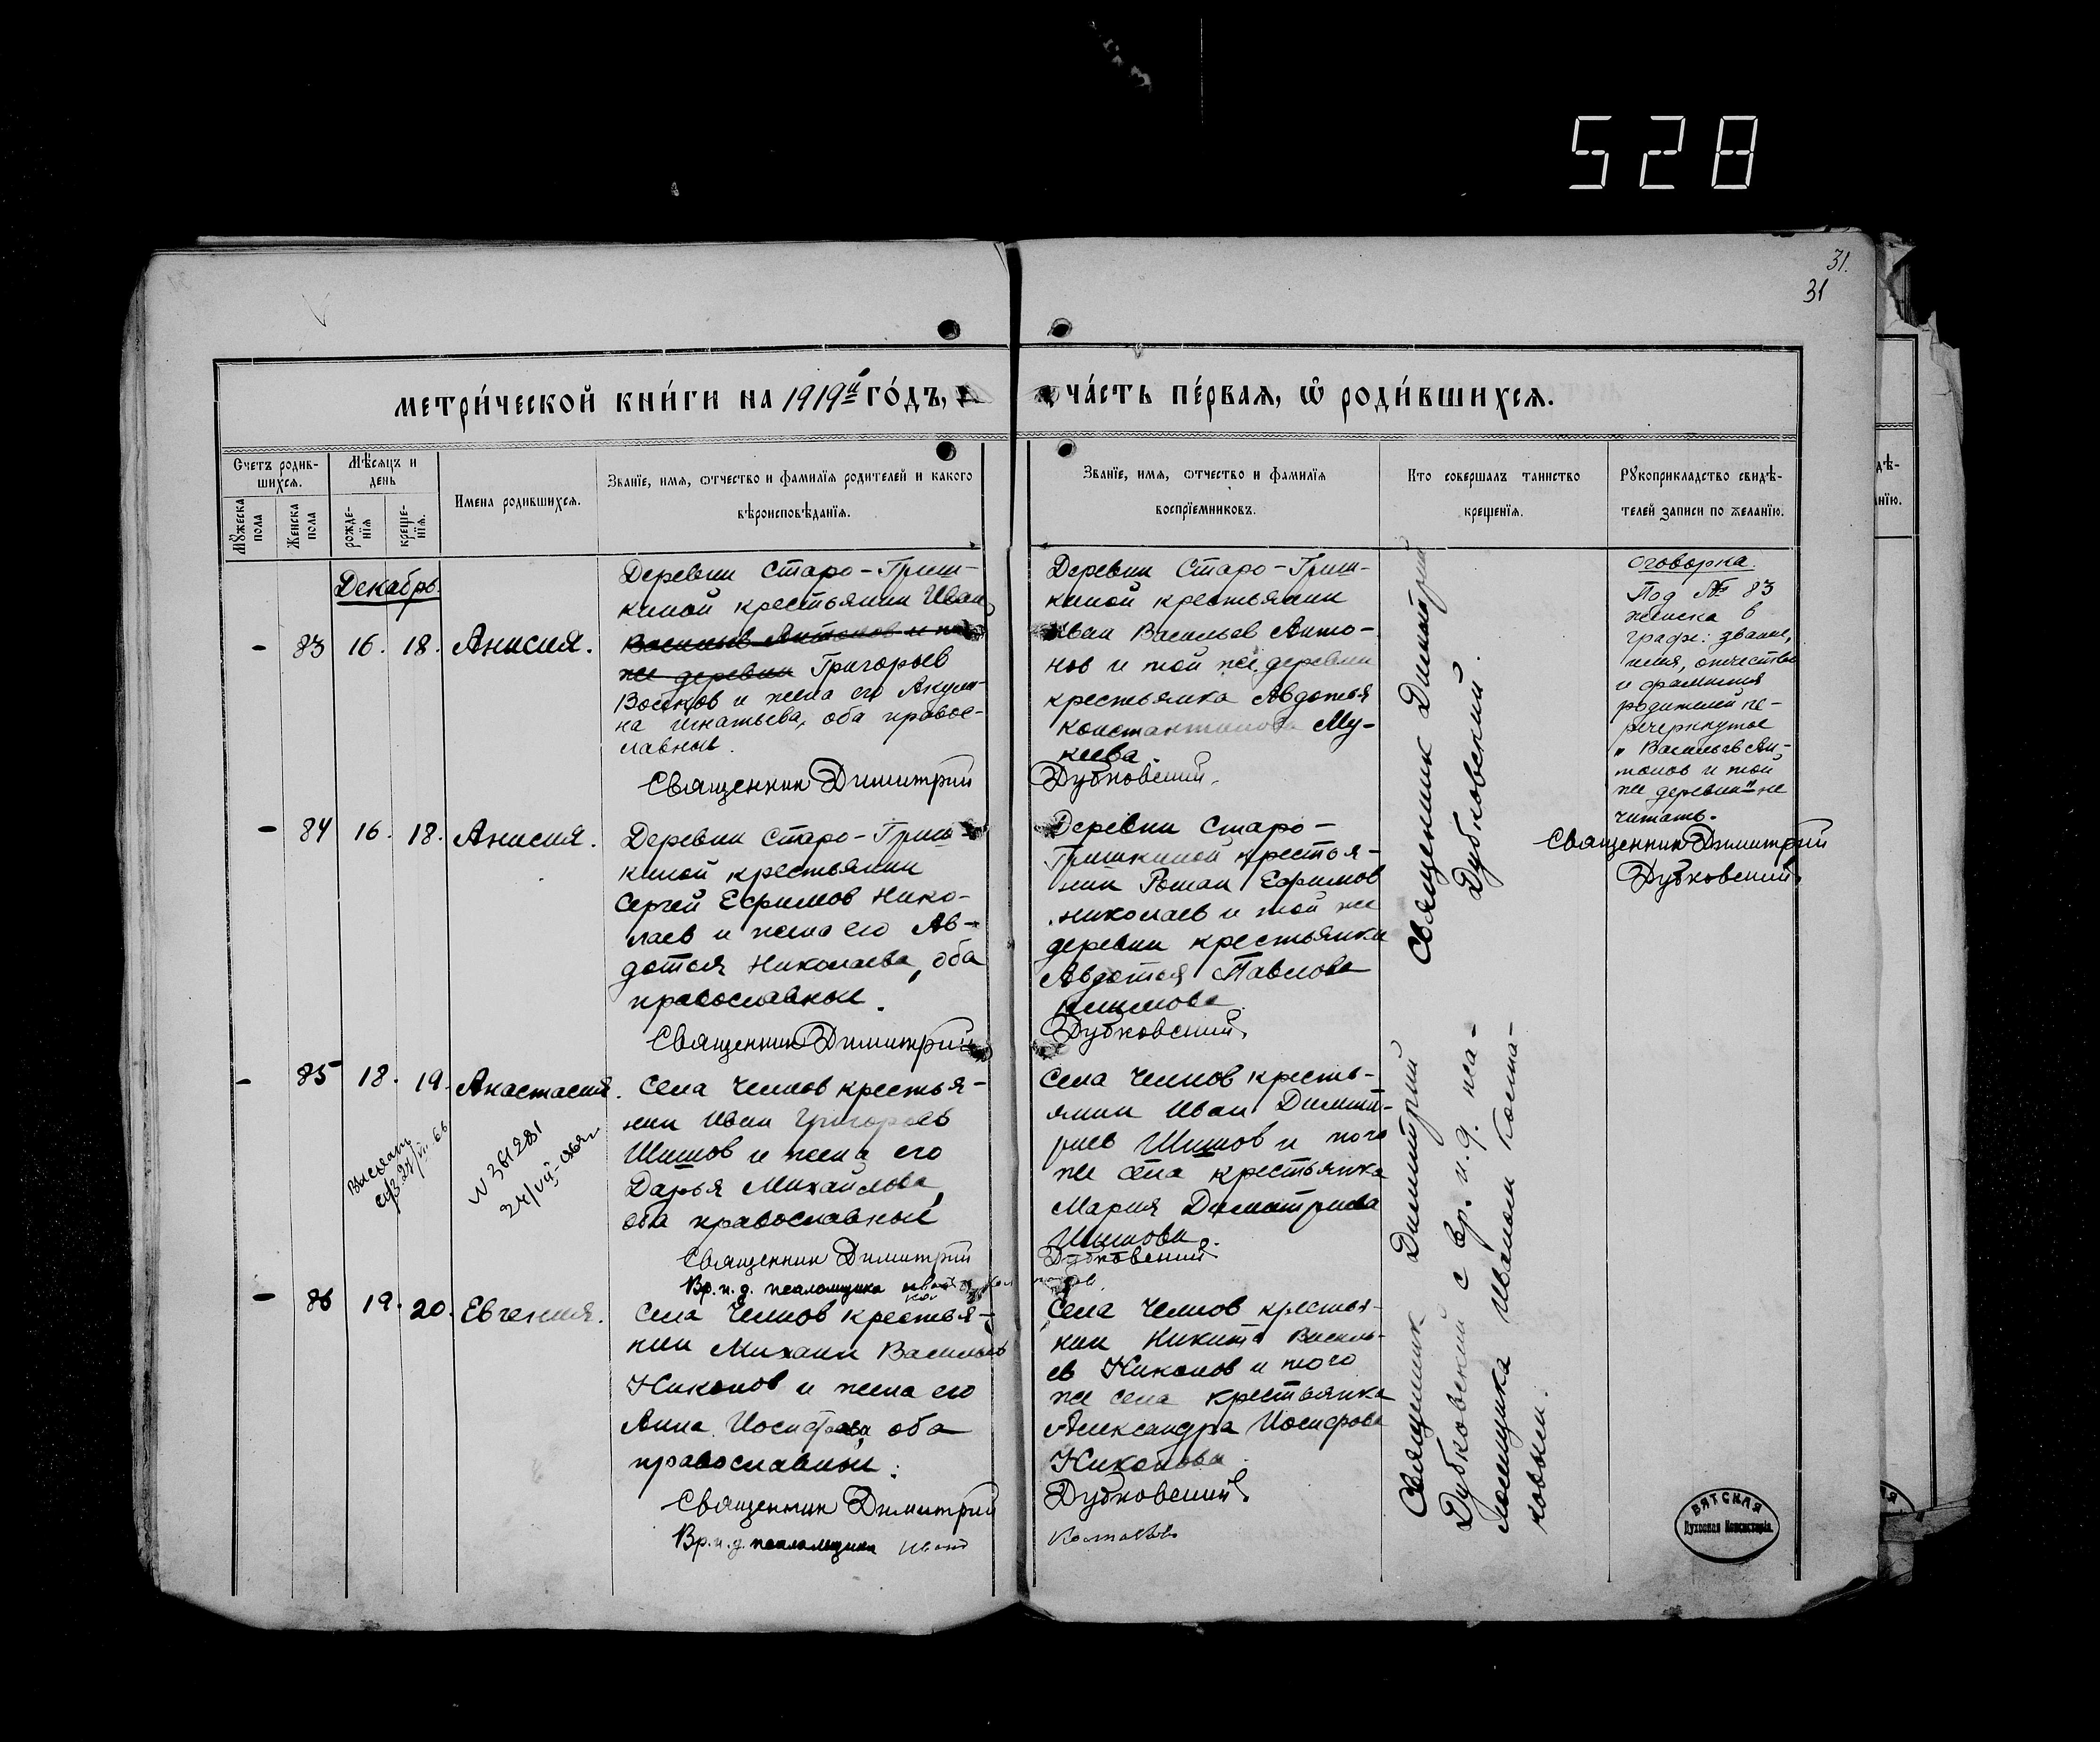 528
31.
31
МЕТРИ́ЧЕСКОЙ КНИ́ГИ НА 1919й ГО́ДЪ,
ЧА́СТЬ ПЕ́РВАЯ, Ѽ РОДИ́ВШИХСЯ.
Счетъ родив-
шихся.
Мѣсяцъ и
день
Мужеска
пола
Женска
пола
рожде-
нїя
креще-
нїя.
Имена родившихся.
Званїе, имя, ѿчество и фамилїя родителей и какого
вѣроисповѣданїя.
Званїе, имя, ѿчество и фамилїя
воспрїемниковъ.
Кто совершалъ таинство
крещенїя.
Рукоприкладство свидѣ-
телей записи по желанїю.
Декабрь.
- 83 16. 18. Анисия.
Деревни Старо-Гриш-
киной крестьянин Иван
Васильев Антонов и той
же деревни Григорьев
и жена его Акули-
на Игнатьева, оба правос-
лавные.
Священник Димитрий
Деревни Старо-Гриш-
киной крестьянин
Иван Васильев Анто-
нов и той же деревни
крестьянка Авдотья
Константинова Му-
Дубковский.
Священник Димитрий
Дубковский.
Оговорка.
Под № 83
в
графе: звание,
имя, отчество
и фамилия
родителей пе-
речеркнутое
"Васильев Ан-
тонов и той
же деревни" не
читать.
Священник Димитрий
Дубковский.
- 84 16. 18. Анисия.
Деревни Старо-Гриш-
киной крестьянин
Сергей Ефимов Нико-
лаев и жена его Ав-
дотья Николаева, оба
православные.
Священник Димитрий
Деревни Старо-
Гришкиной крестья-
нин Роман Ефимов
Николаев и той же
деревни крестьянка
Авдотья Павлова
Дубковский.
- 85 18. 19. Анастасия.
Села Чемов крестья-
нин Иван Григорьев
Шишов и жена его
Дарья Михайлова,
оба православные
Священник Димитрий
Вр. и. д. псаломщика
24/VII-66
N 361281
24/VII-
Села Чемов кресть-
янин Иван Димит-
риев Шишов и того
же села крестьянка
Мария Димитриева
Шишова.
Дубковский.
Священник Димитрий
Дубковский с вр. и. д. пса-
ломщика Иваном Колпа-
ковым.
- 86 19. 20. Евгения.
Села Чемов крестья-
нин Михаил Васильев
Никонов и жена его
Анна Иосифова оба
православные.
Священник Димитрий
Вр. и. д. псаломщика Иван
Села Чемов крестья-
нин Никита Василь-
ев Никонов и того
же села крестьянка
Александра Иосифова
Никонова
Дубковский.
Колпаков
ВЯТСКАЯ
Духовная Консисторїя.